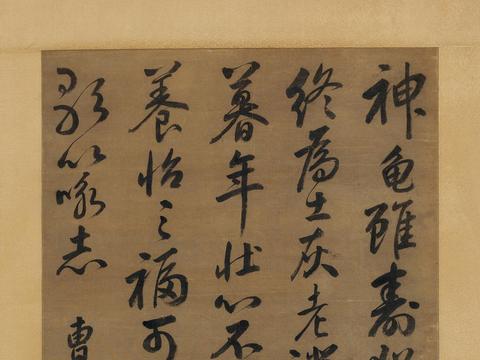 神龜雖壽猶
終為土灰老驥
暮年壯心不
養怡之福可
歌以咏志 曹